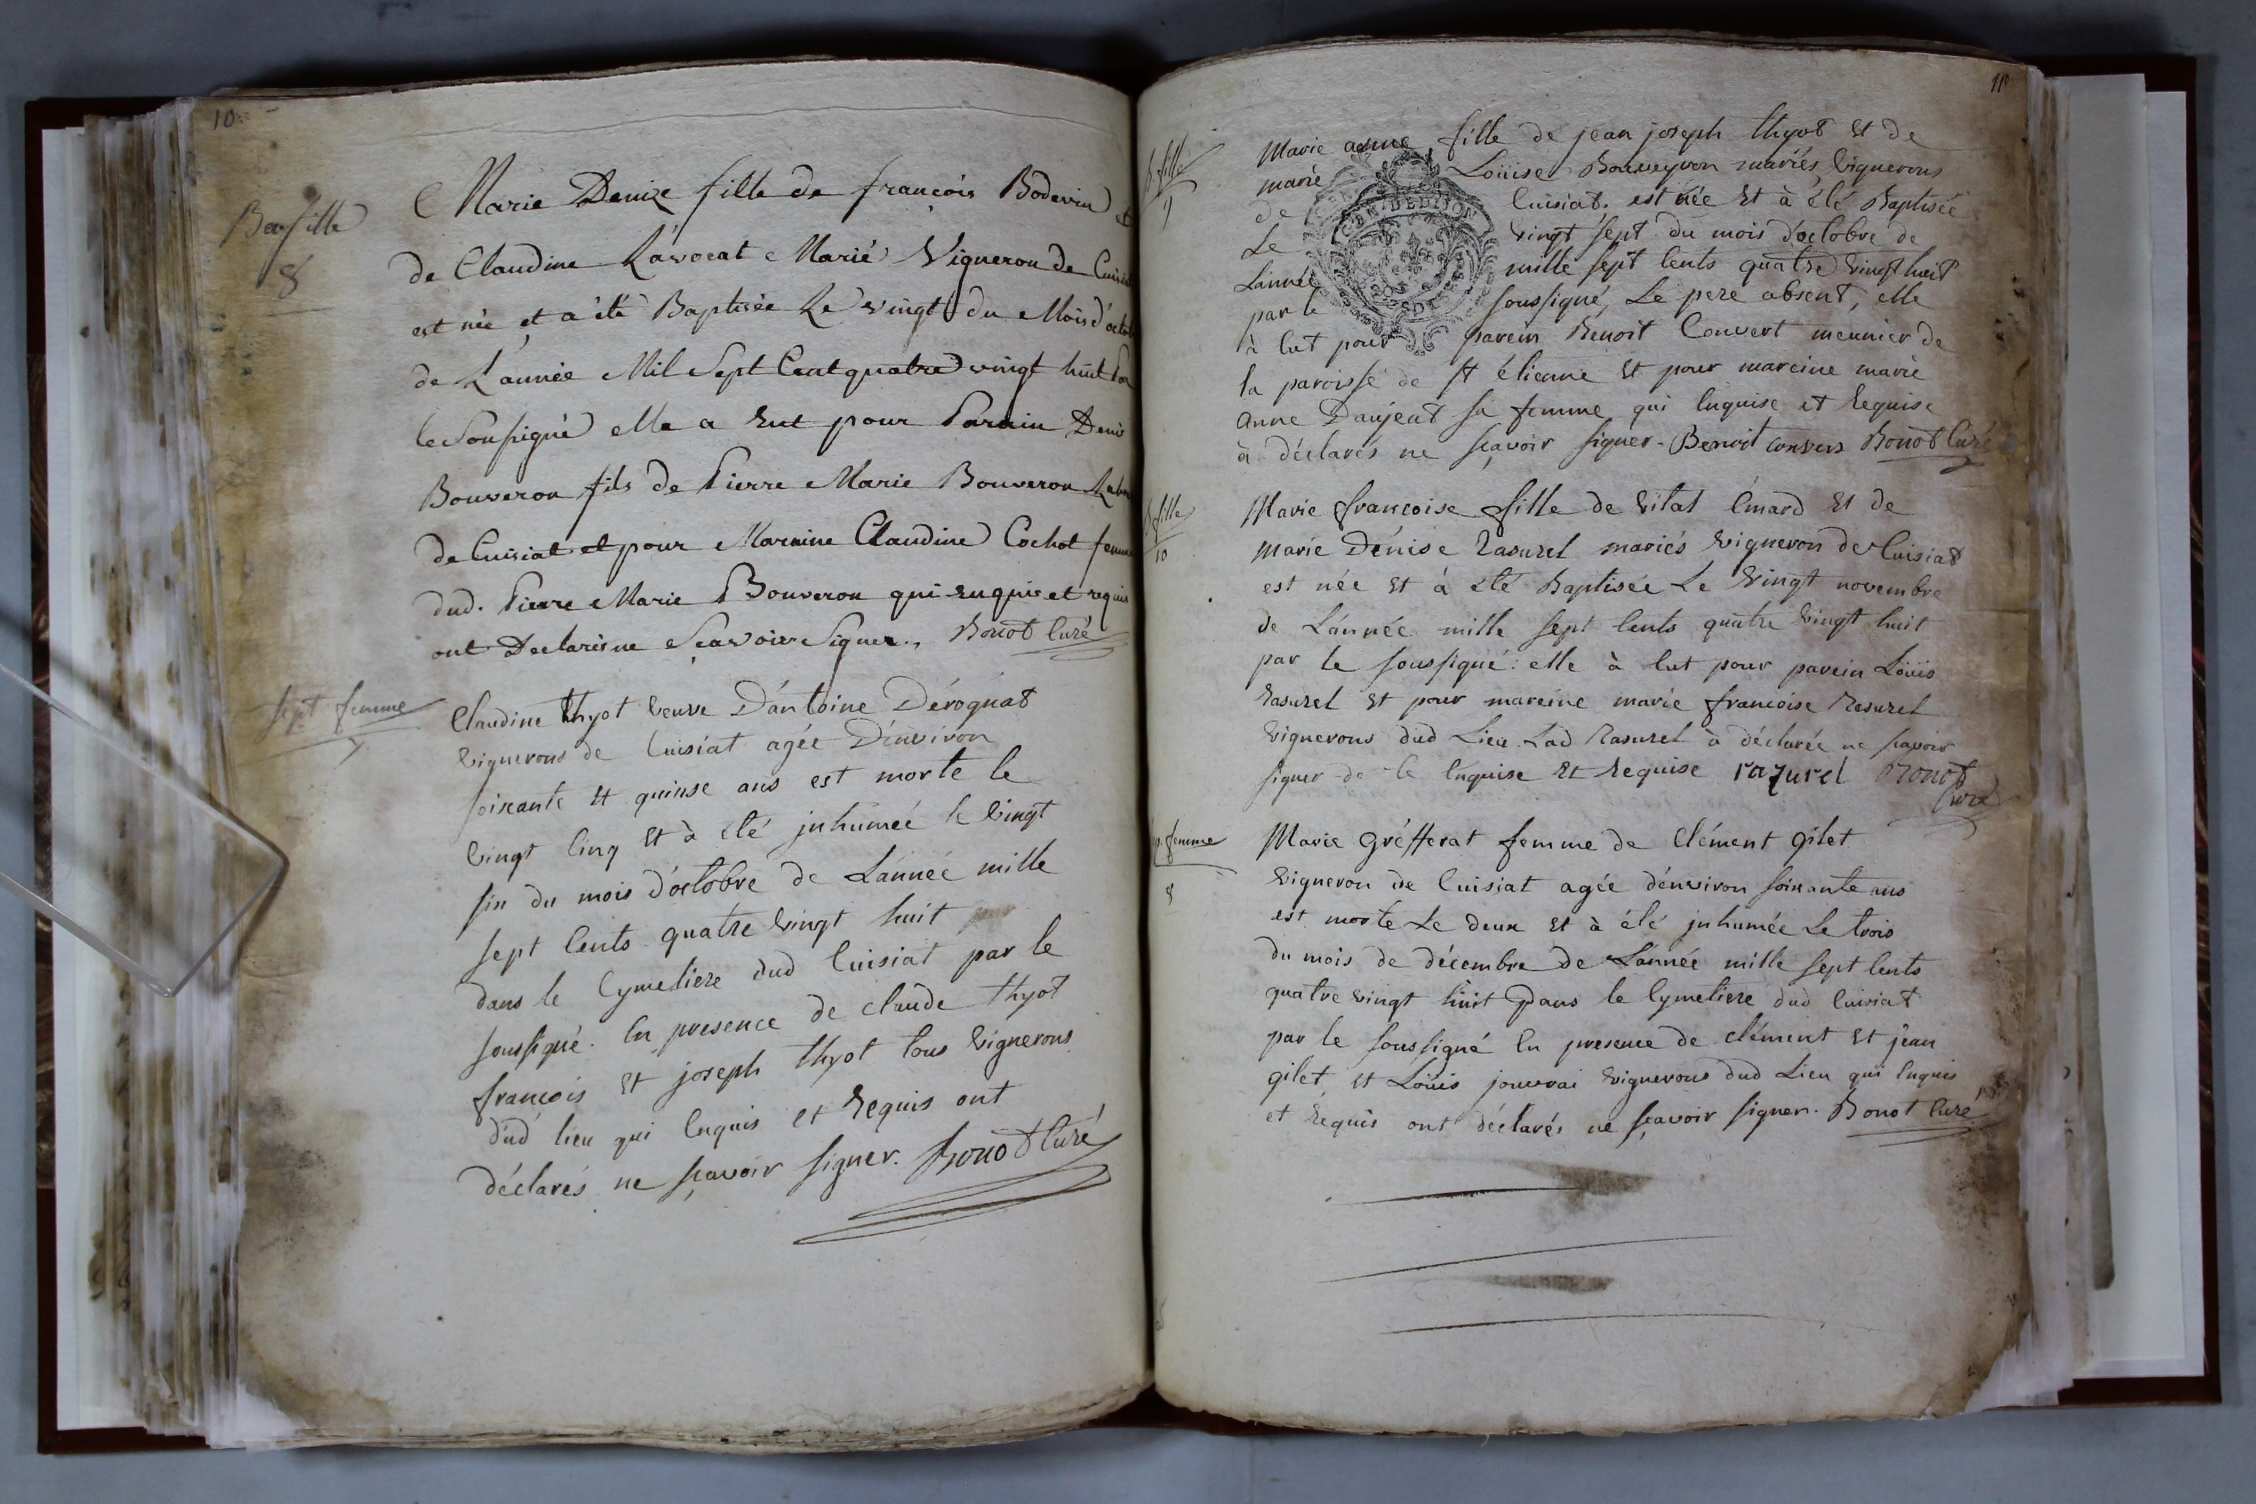 10
Bap fille
8
Marie Denize fille de françois Bodevin et
de Claudine Lavocat Marié Vigneron de Cuisiat
est née et a été Baptisée Le vingt du Mois d'octob
de L'année Mil Sept Cent quatre vingt huit
le Soussigné elle a eut pour Parain Denis
Bouveron fils de Pierre Marie Bouveron
de Cuisiat et pour Maraine Claudine Cochot femme
dud. Pierre Marie Bouveron qui enquis et requis
ont Declaré ne Sçavoir Signer. Bonot Curé
sept femme
7
Claudine thyot veuve D'antoine Dérognat
vignerons de Cuisiat agée D'environ
soixante et quinse ans est morte le
vingt cinq et à été inhumée le vingt
six du mois d'octobre de L'année mille
sept cents quatre vingt huit
dans le Cymetiere dud Cuisiat par le
soussigné. En presence de claude thyot
françois et joseph thyot tous vignerons
dud lieu qui enquis et requis ont
déclarés ne sçavoir signer. Bonot Curé
11
B fille
9
Marie anne fille de jean joseph thyot et de
Loüise Bouveyron mariés vignerons
de Cuisiat. est née et à été Baptisée
Le vingt sept du mois d'octobre de
L'année mille sept cents quatre vingt huit
par le soussigné, Le pere absent, elle
à eut pour parein Benoit Convert meunier de
la paroisse de st étienne et pour mareine marie
anne Daujeat sa femme qui enquise et requise
à déclarés ne sçavoir signer - Benoit convers Bonot Curé
GEN. DE DIJON
B fille
10
Marie françoise fille de vital Emard et de
marie Dénise Rasurel mariés vigneron de Cuisiat
est née et à été Baptisée Le vingt novembre
de L'année mille sept cents quatre vingt huit
par le soussigné: elle à eut pour parein Loüis
rasurel et pour mareine marie françoise Rasurel
vignerons dud Lieu. Lad Rasurel à déclarée ne sçavoir
signer de ce enquise et requise razurel Bonot
Curé
sep. femme
8
Marie Gréfferat femme de Clément gilet
vigneron de Cuisiat agée d'environ soixante ans
est morte Le deux et à été inhumée Le trois
du mois de décembre de L'année mille sept cents
quatre vingt huit Dans le Cymetiere dud Cuisiat
par le soussigné En presence de clément et jean
gilet et Loüis jouvrai vignerons dud Lieu qui enquis
et requis ont déclarés ne sçavoir signer. Bonot Curé